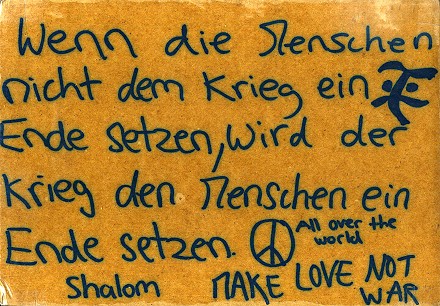 Wenn die Menschen
nicht dem Krieg ein
Ende setzen, wird der
Krieg den Menschen ein
Ende setzen.
All over the
world
Shalom
MAKE LOVE NOT
WAR